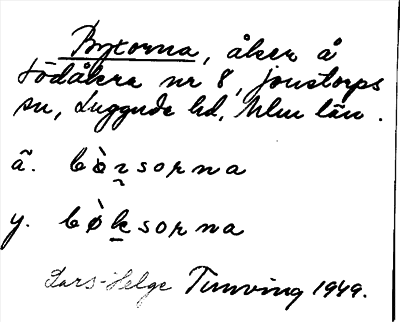 Byxorna, åker å
Södåkra nr 8, Jonstorps
sn, Luggude hd, Mlm län.
ä. bòr̰sorna
y. bøksorna
Lars-Helge Tunving 1949.